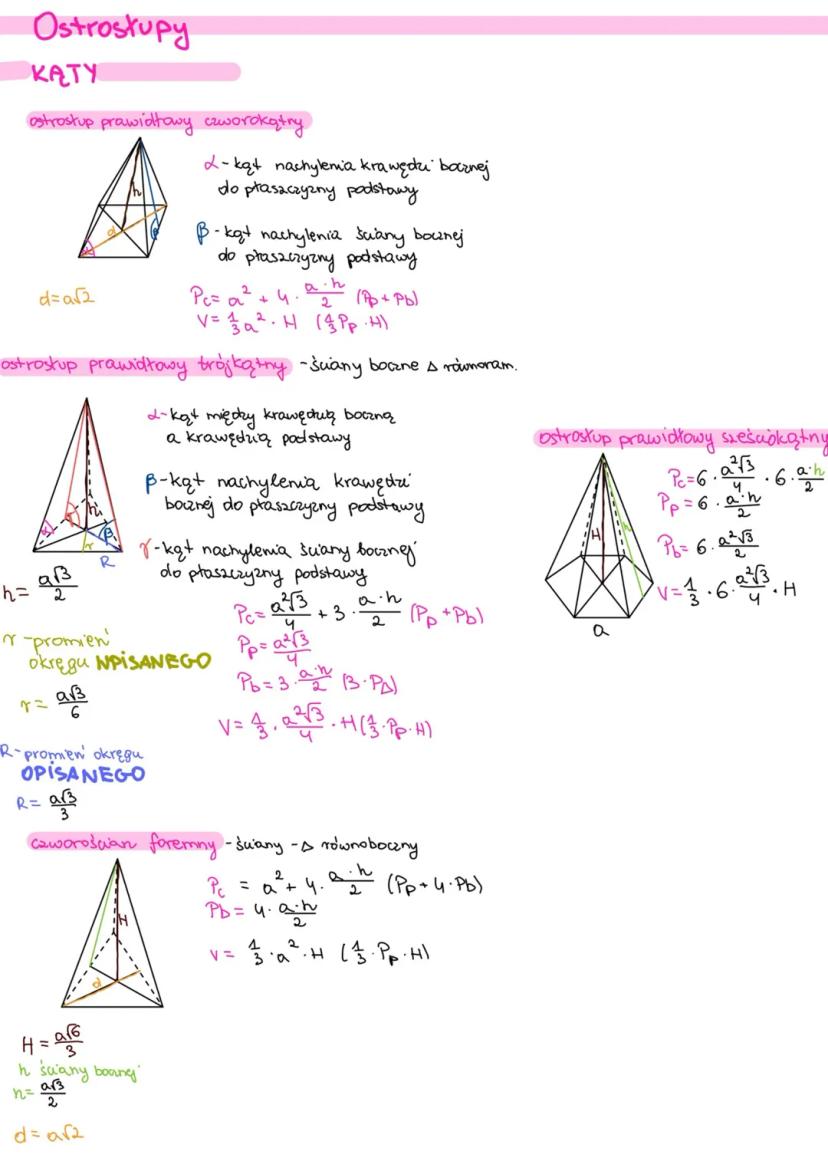 Ostrosłupy
KĄTY
ostrosłup prawidłowy czworokątny
h
d
α
β
α - kąt nachylenia krawędzi bocznej
do płaszczyzny podstawy
β - kąt nachylenia ściany bocznej
do płaszczyzny podstawy
d = a√2
Pc = a² + 4 · a·h/2 (Pp + Pb)
V = 1/3 a² · H (1/3 Pp · H)
ostrosłup prawidłowy trójkątny - ściany boczne Δ równoram.
α - kąt między krawędzią boczną
a krawędzią podstawy
β - kąt nachylenia krawędzi
bocznej do płaszczyzny podstawy
γ - kąt nachylenia ściany bocznej
do płaszczyzny podstawy
α
γ
h
β
r
R
h = a√3/2
r - promień
okręgu WPISANEGO
r = a√3/6
R - promień okręgu
OPISANEGO
R = a√3/3
Pc = a²√3/4 + 3 · a·h/2 (Pp + Pb)
Pp = a²√3/4
Pb = 3 · a·h/2 (3 · PΔ)
V = 1/3 · a²√3/4 · H (1/3 · Pp · H)
ostrosłup prawidłowy sześciokątny
H
h
a
Pc = 6 · a²√3/4 · 6 · a·h/2
Pp = 6 · a·h/2
Pb = 6 · a²√3/2
V = 1/3 · 6 · a²√3/4 · H
czworościan foremny - ściany - Δ równoboczny
H
d
Pc = a² + 4 · a·h/2 (Pp + 4 · Pb)
Pb = 4 · a·h/2
V = 1/3 · a² · H (1/3 · Pp · H)
H = a√6/3
h ściany bocznej
h = a√3/2
d = a√2